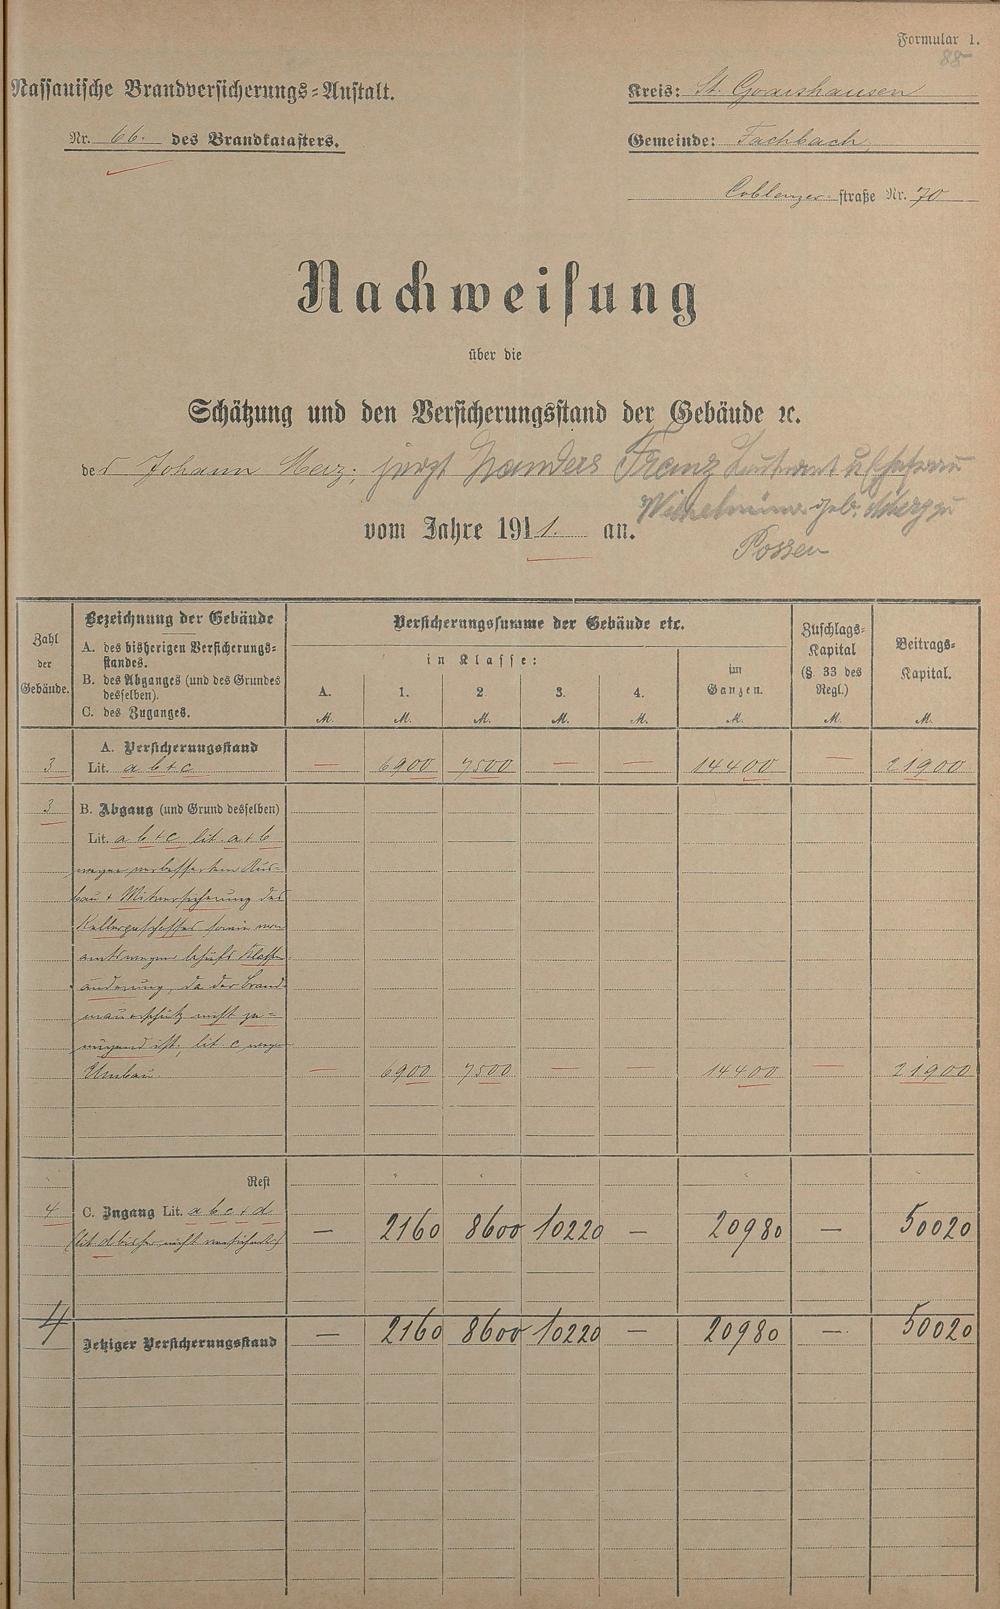 Formular 1.
88
Nassauische Brandversicherungs-Anstalt.
Kreis: St. Goarshausen
Nr. 66. des Brandkatasters.
Gemeinde: Fachbach.
Coblenzer straße Nr. 70
Nachweisung
über die
Schätzung und den Versicherungsstand der Gebäude ꝛc.
des Johann Merz; jetzt Franz Leutnant u Ehefrau
Wilhelmine geb. Merz zu
Possen
vom Jahre 1911. an.
Zahl der Gebäude.
Bezeichnung der Gebäude
A. des bisherigen Versicherungs-
standes.
B. des Abganges (und des Grundes
desselben).
C. des Zuganges.
Versicherungssumme der Gebäude etc.
in Klasse:
A. 1. 2. 3. 4.
im Ganzen.
Zuschlags-
Kapital
(§. 33 des
Regl.)
Beitrags-
Kapital.
M. M. M. M. M. M. M. M.
A. Versicherungsstand
3 Lit. a b + c — 6900 7500 — — 14400 — 21900
3 B. Abgang (und Grund desselben)
Lit. a b + c lit. a + b
wegen verbessertem Aus-
bau + Mitversicherung des
Kellergeschosses sowie von
amtswegen behufs Klassen
änderung, da der Brand-
mauerschutz nicht ge-
nügend ist; lit c wegen
Umbau. — 6900 7500 — — 14400 — 21900
Rest
4 C. Zugang Lit. a b c + d
(lit d bisher nicht versichert) — 2160 8600 10220 — 20980 — 50020
4 Jetziger Versicherungsstand — 2160 8600 10220 — 20980 — 50020